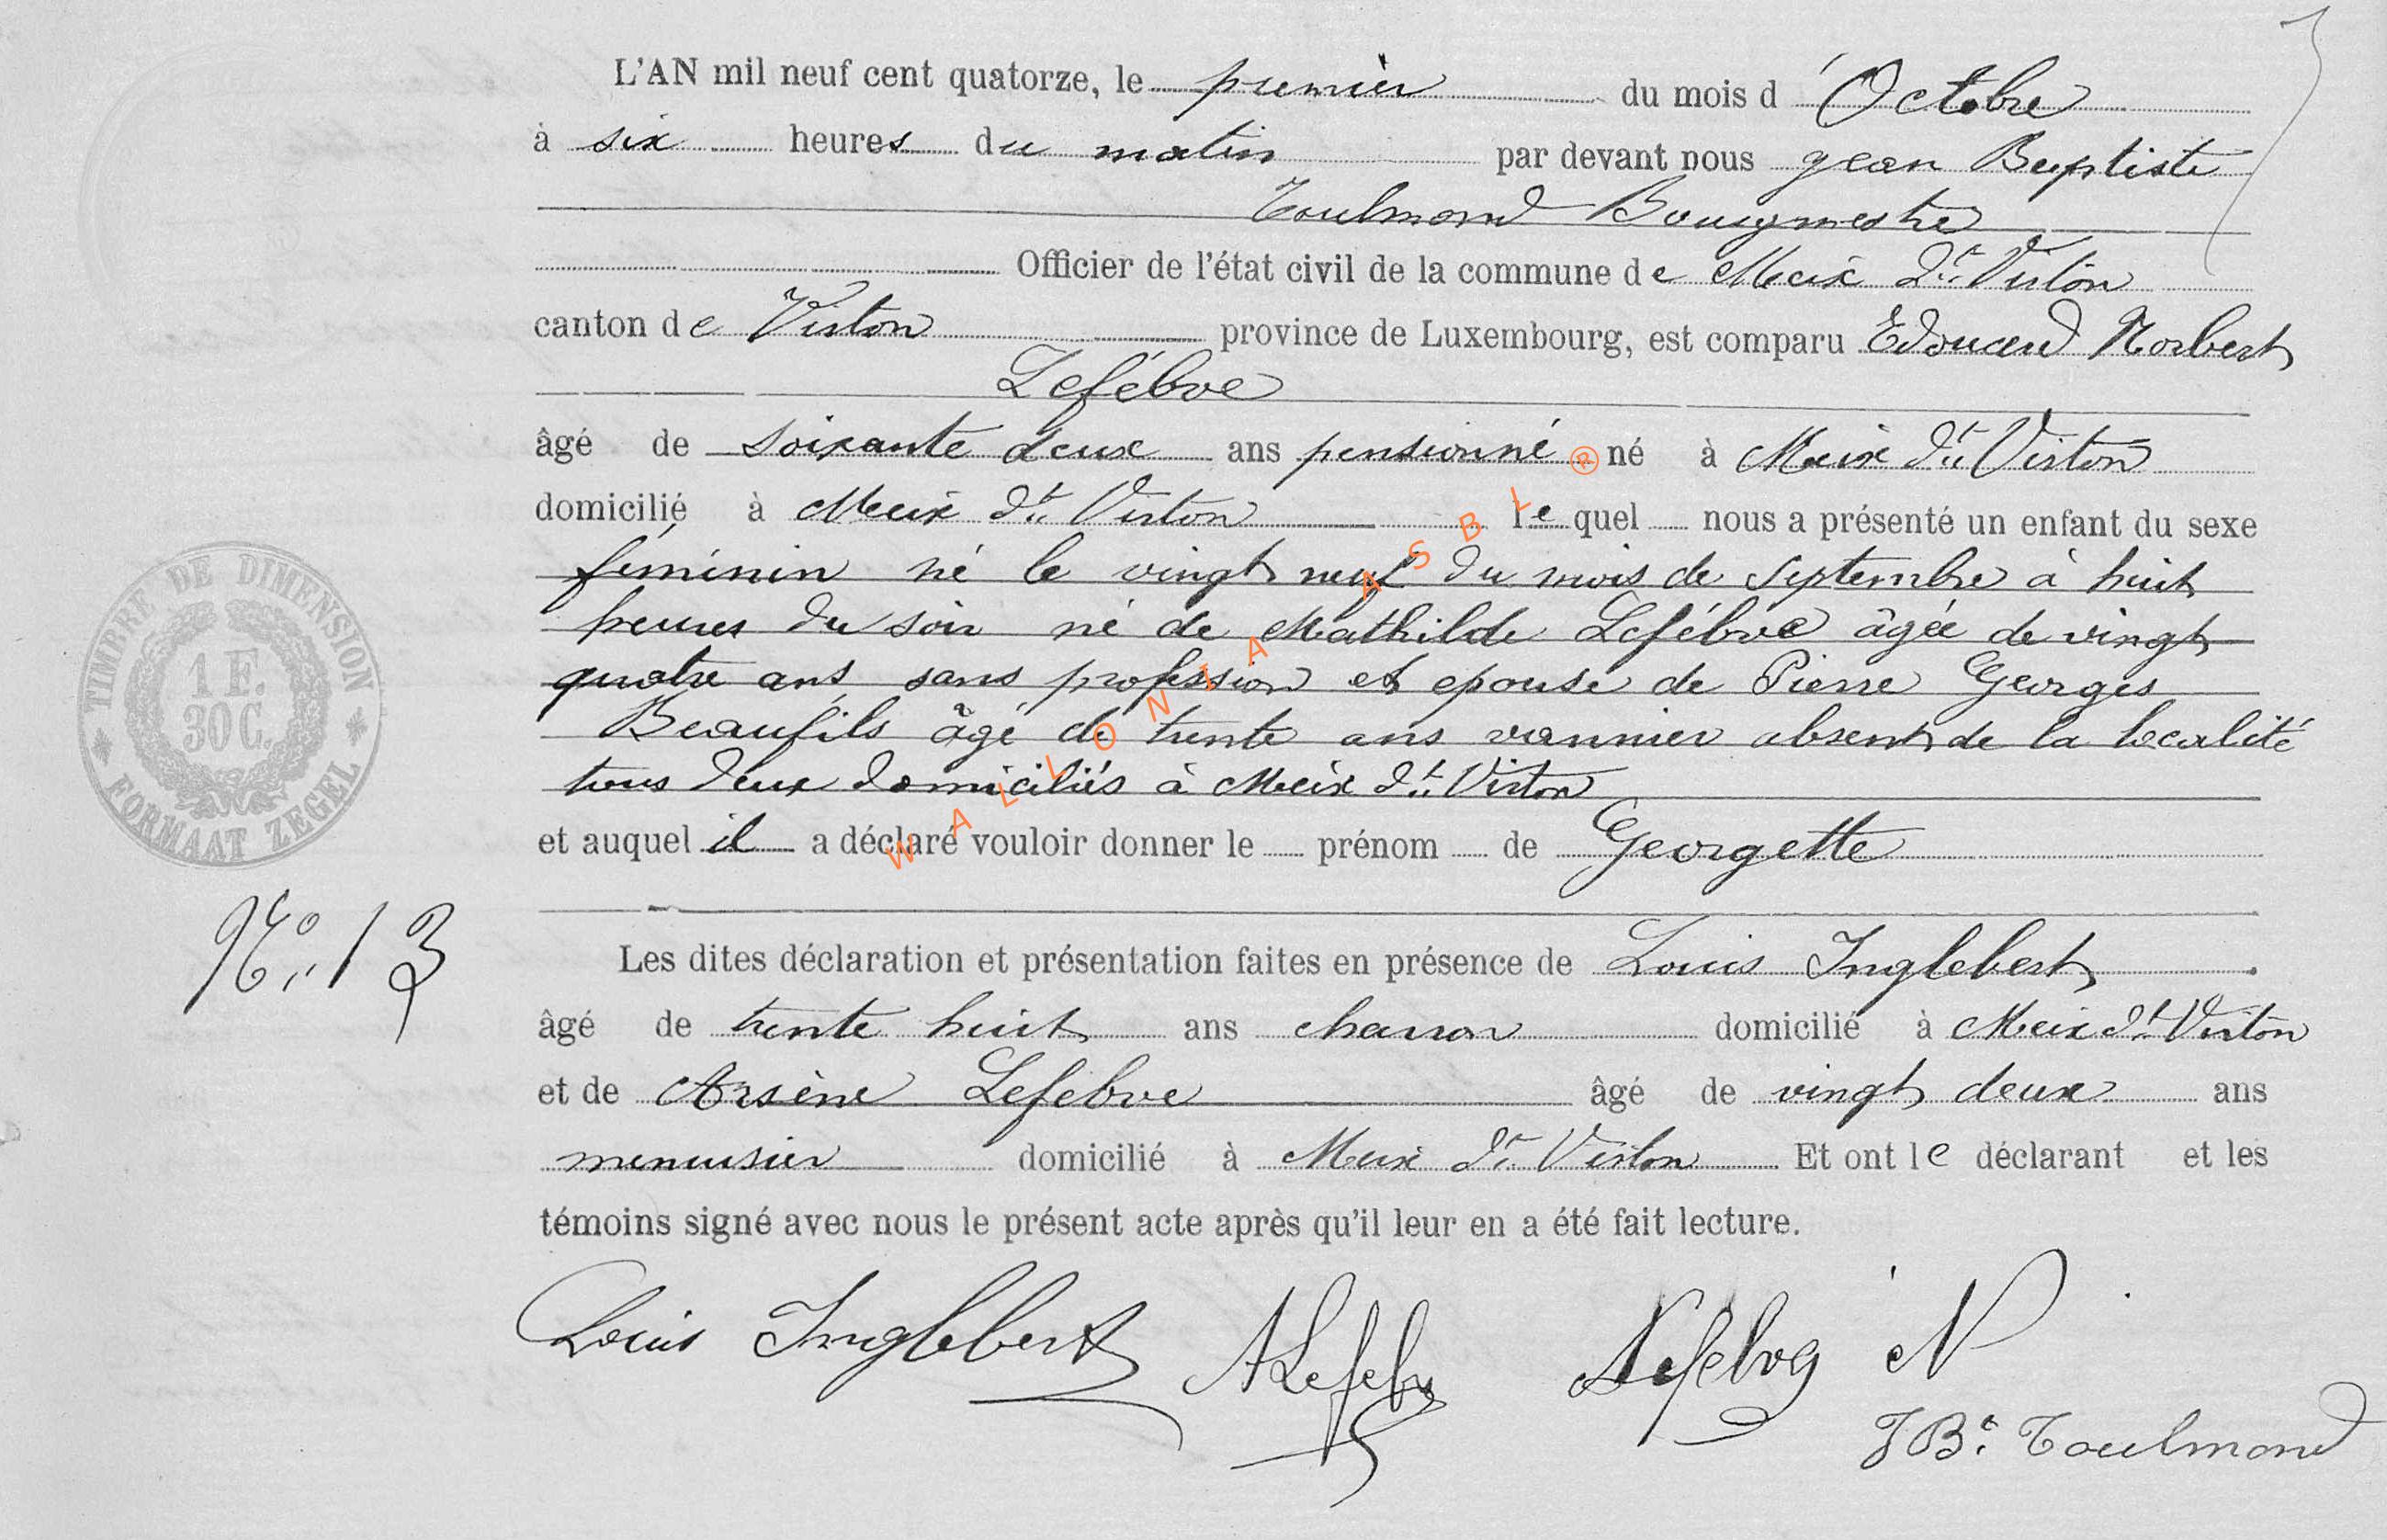 L'AN mil neuf cent quatorze, le premier du mois d'Octobre
à six heures du matin par devant nous Jean Baptiste
Toulmond Bourgmestre
Officier de l'état civil de la commune de Meix dt Virton
canton de Virton province de Luxembourg, est comparu Edouard Norbert
Lefébve
âgé de soixante deux ans pensionné né à Meix dt Virton
domicilié à Meix dt Virton lequel nous a présenté un enfant du sexe
féminin né le vingt neuf du mois de Septembre à huit
heures du soir né de Mathilde Lefébve âgée de vingt
quatre ans sans profession et epouse de Pierre Georges
Beaufils âgé de trente ans vannier absent de la localité
tous deux domiciliés à Meix dt Virton
et auquel il a déclaré vouloir donner le prénom de Georgette
No 13
Les dites déclaration et présentation faites en présence de Louis Inglebert
âgé de trente huit ans charron domicilié à Meix dt Virton
et de Arsène Lefebve âgé de vingt deux ans
menuisier domicilié à Meix dt Virton Et ont le déclarant et les
témoins signé avec nous le présent acte après qu'il leur en a été fait lecture.
Louis Inglebert ALefebve Lefebve N
JBte Toulmond
TIMBRE DE DIMENSION
1 F.
30 C.
FORMAAT ZEGEL
WALLONIA ASBL ®